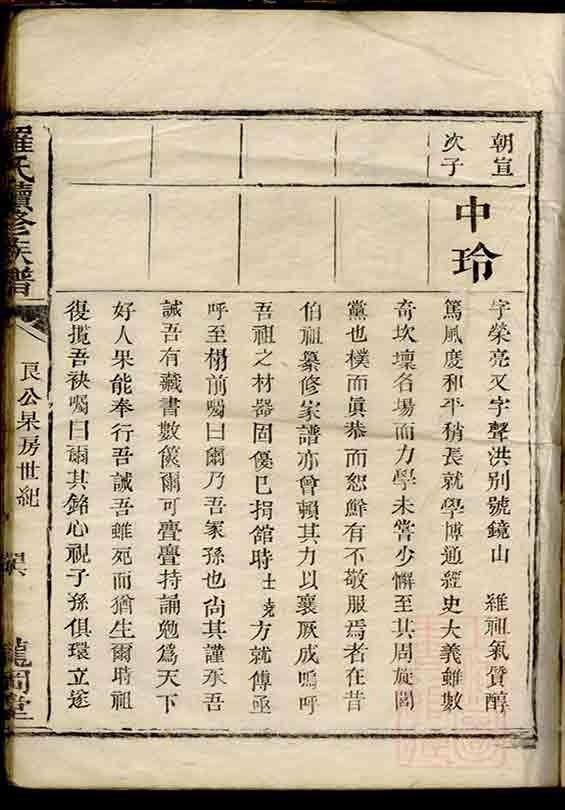 朝宣
次子
中玲
字榮亮又字聲洪別號鏡山 維祖氣質醇
篤風度和平稍長就學博通經史大義雖數
奇坎壈名場而力學未嘗少懈至其周旋閭
黨也樸而眞恭而恕鮮有不敬服焉者在昔
伯祖纂修家譜亦曾賴其力以襄厥成嗚呼
吾祖之材器固優巳捐館時士 方就傅亟
呼至榻前囑曰爾乃吾家孫也尙其謹承吾
誡吾有藏書數篋爾可亹亹持誦勉爲天下
好人果能奉行吾誡吾雖死而猶生爾時祖
復攬吾袂囑曰爾其銘心視子孫俱環立遂
羅氏續修族譜
良公杲房世紀
龍岡堂